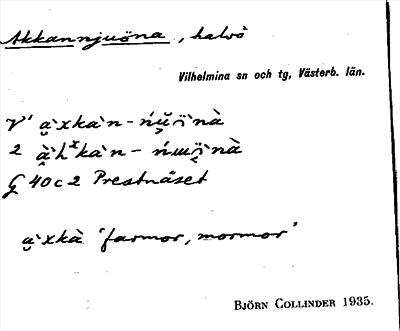 Akkannjuöna, halvö
Vilhelmina sn och tg, Västerb. län.
V'
2
G 40 c 2 Prestnäset
a̯`xkà 'farmor, mormor'
BJÖRN COLLINDER 1935.